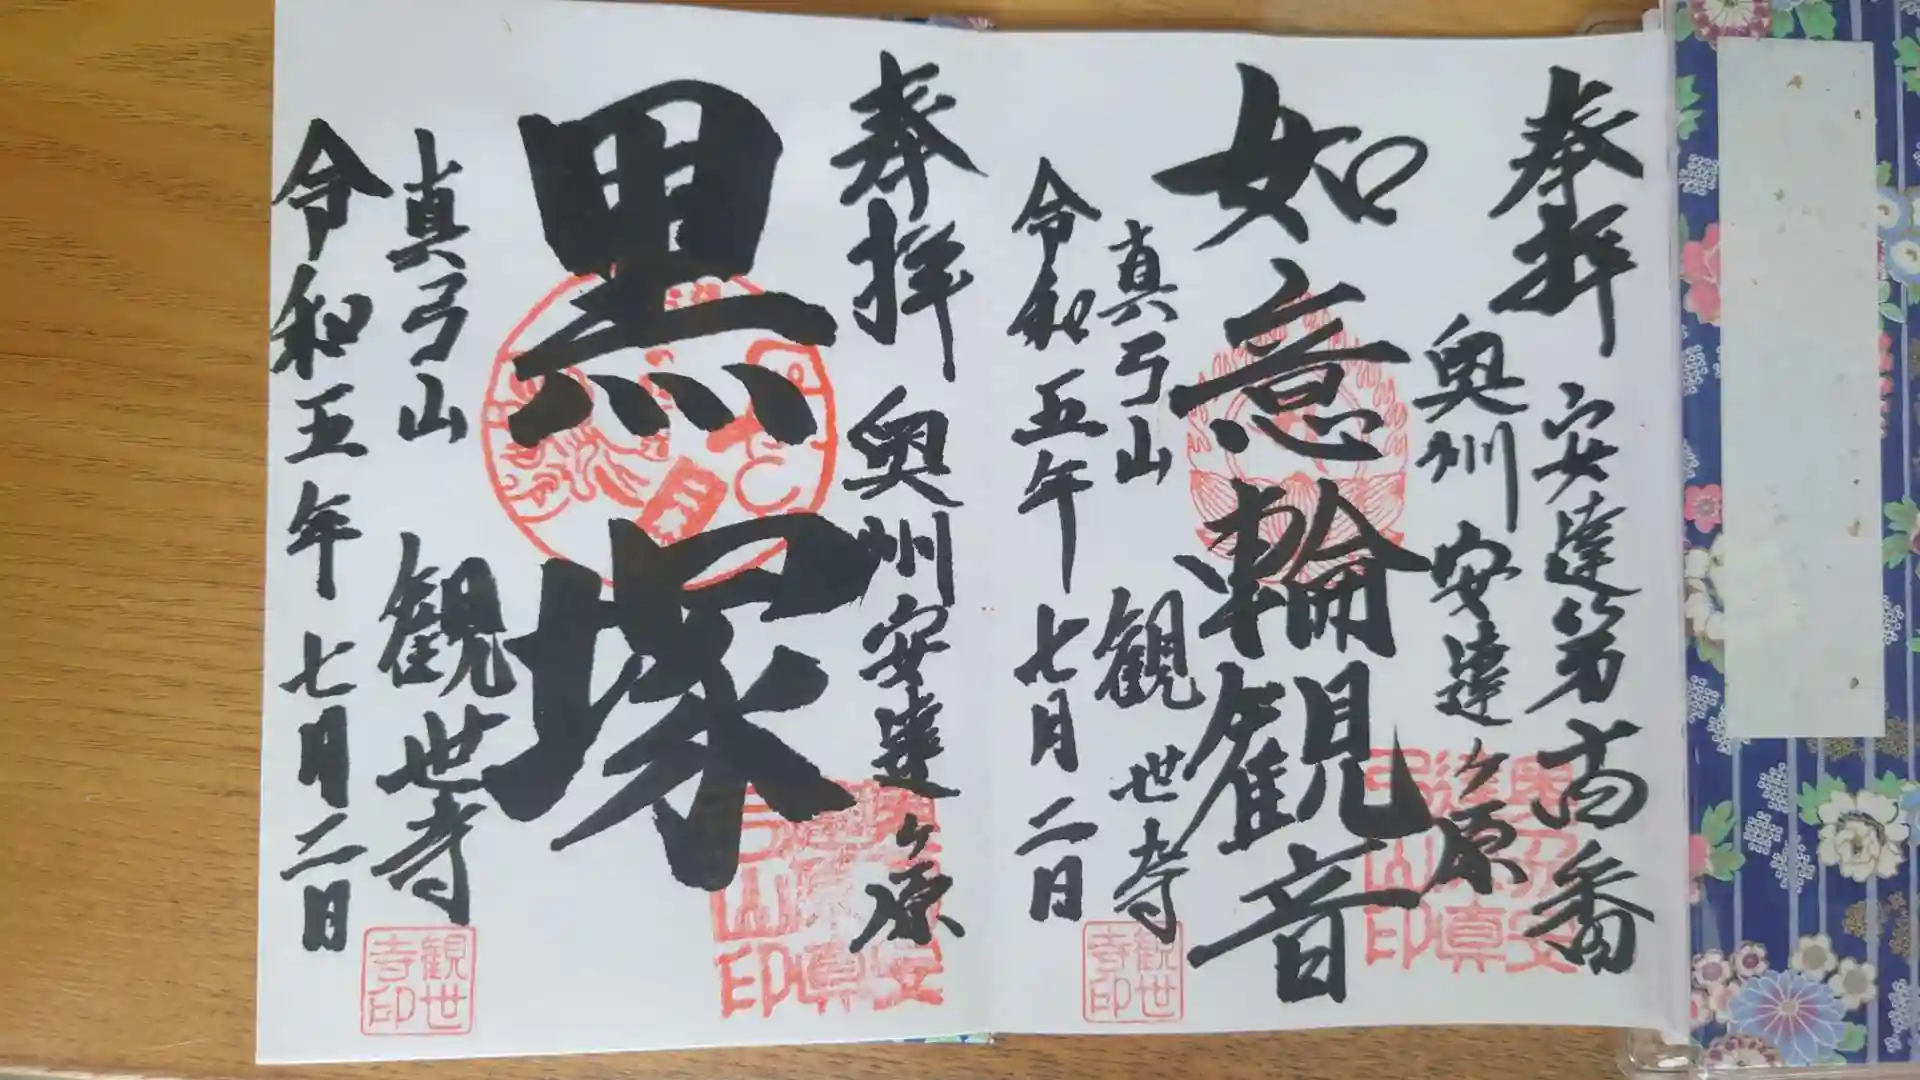 奉拜
安達第高番
奥州 安達ヶ原
如意輪観音
真弓山 観世寺
令和五年七月二日
観世寺印
奉拜
奥州安達ヶ原
黒塚
真弓山 観世寺
令和五年七月二日
観世寺印